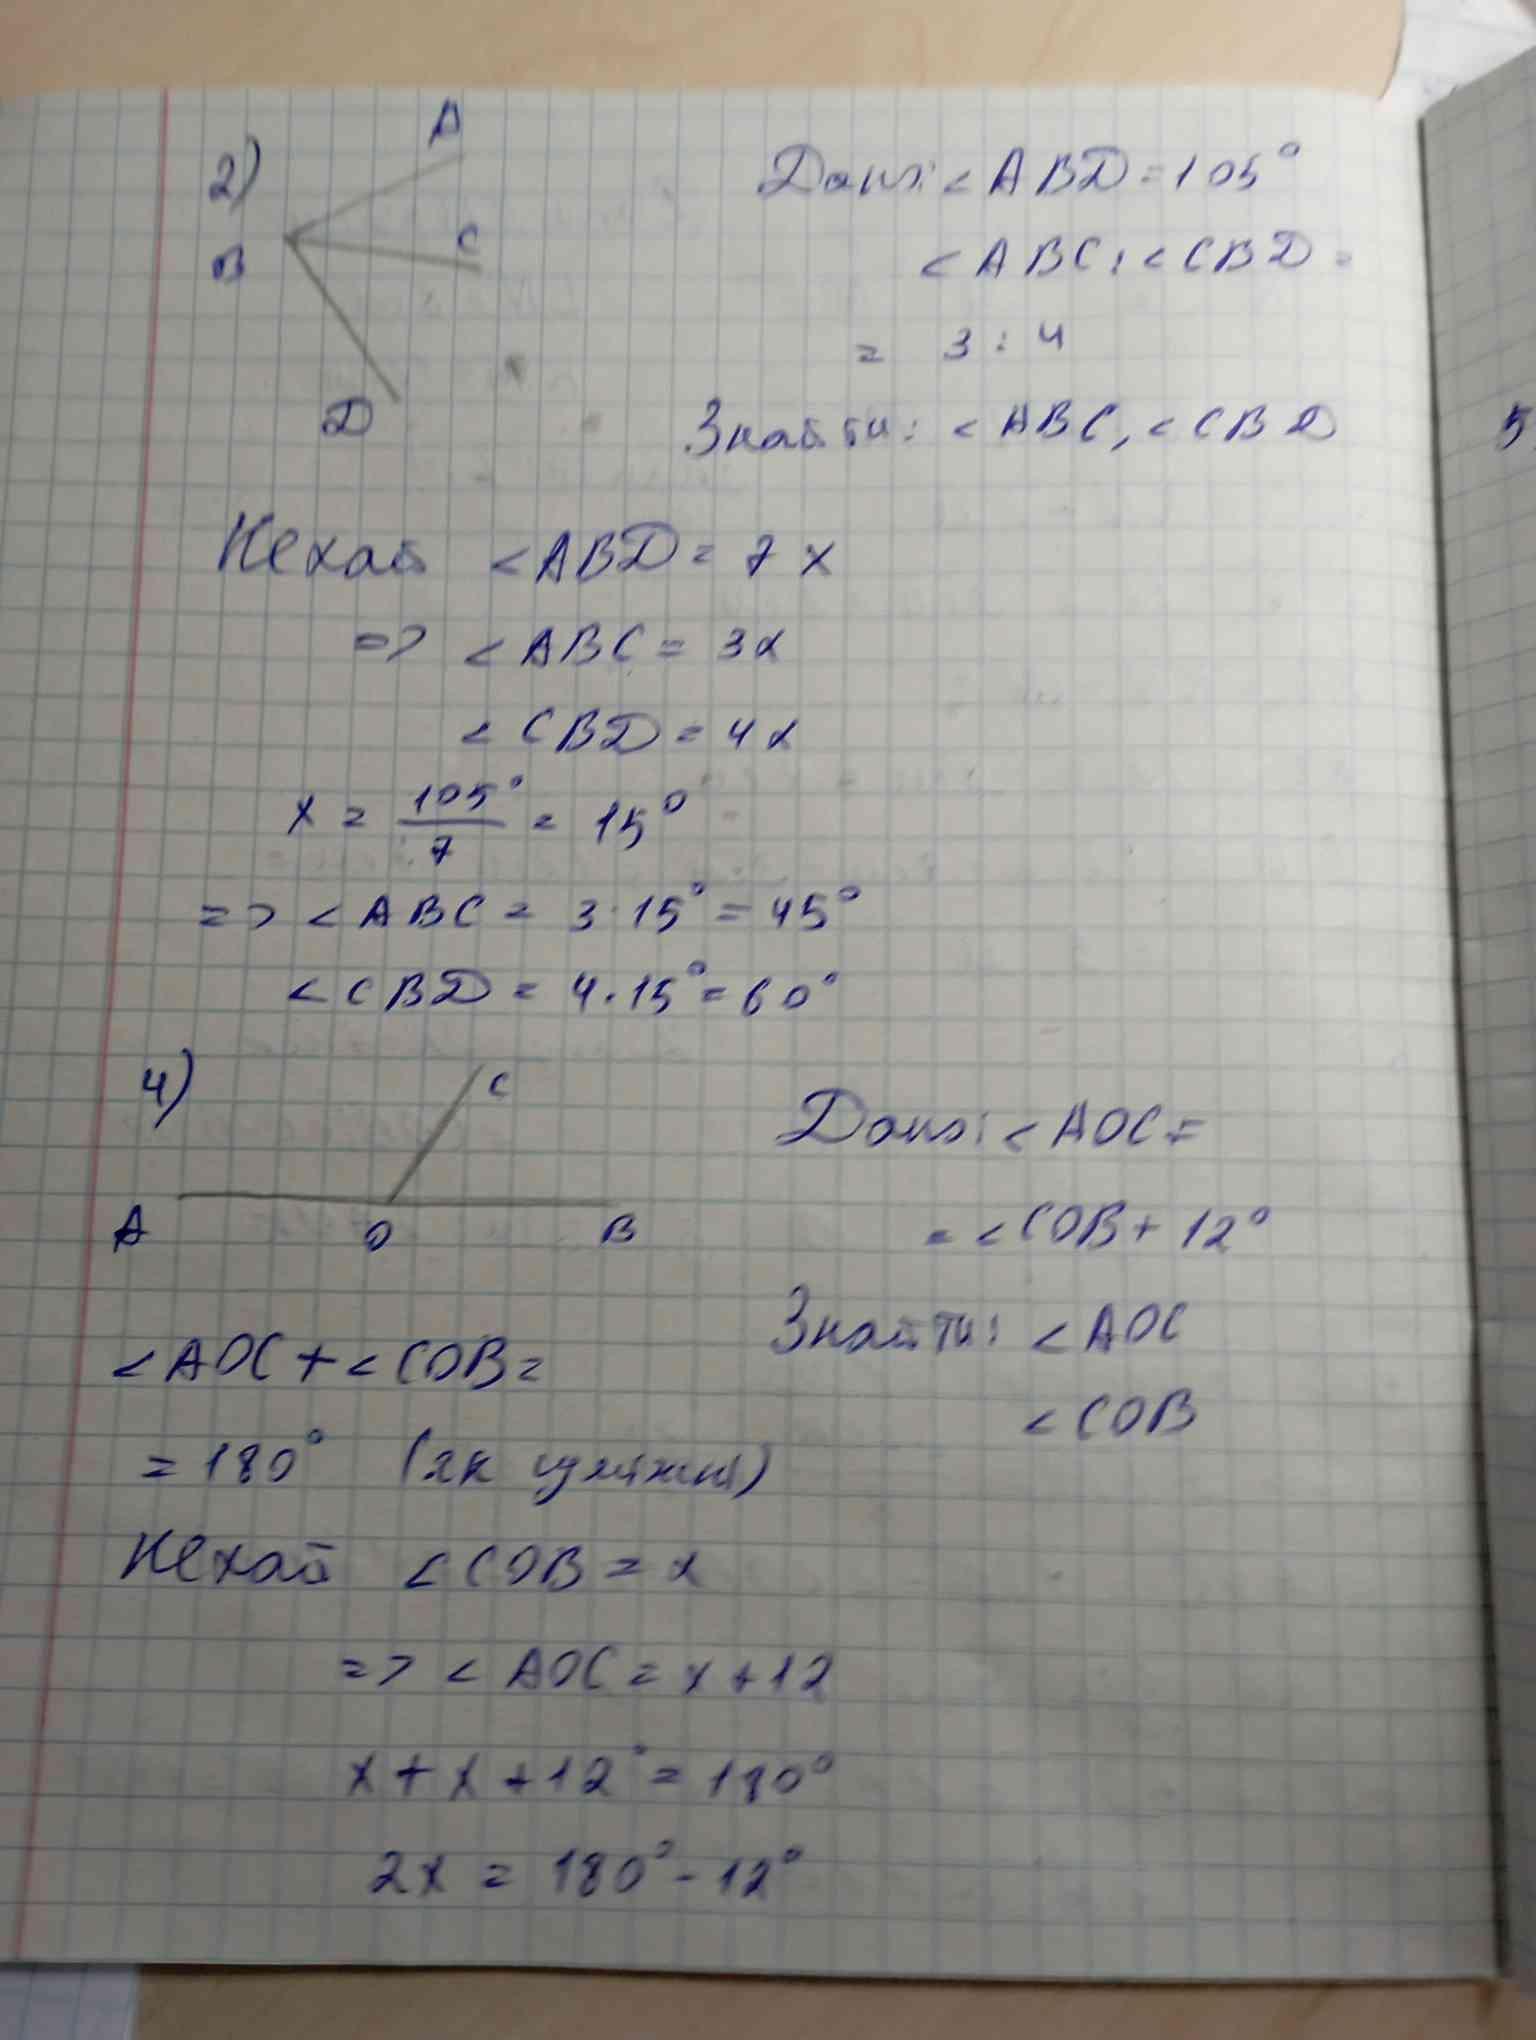 2)
A
B
C
D
Дано: < ABD = 105°
< ABC : < CBD =
= 3 : 4
Знайти: < ABC, < CBD
Нехай < ABD = 7x
=> < ABC = 3x
< CBD = 4x
x = 105°/7 = 15°
=> < ABC = 3·15° = 45°
< CBD = 4·15° = 60°
4)
C
A O B
Дано: < AOC =
= < COB + 12°
Знайти: < AOC
< COB
< AOC + < COB =
= 180° (як суміжні)
Нехай < COB = x
=> < AOC = x + 12
x + x + 12° = 180°
2x = 180° - 12°
5